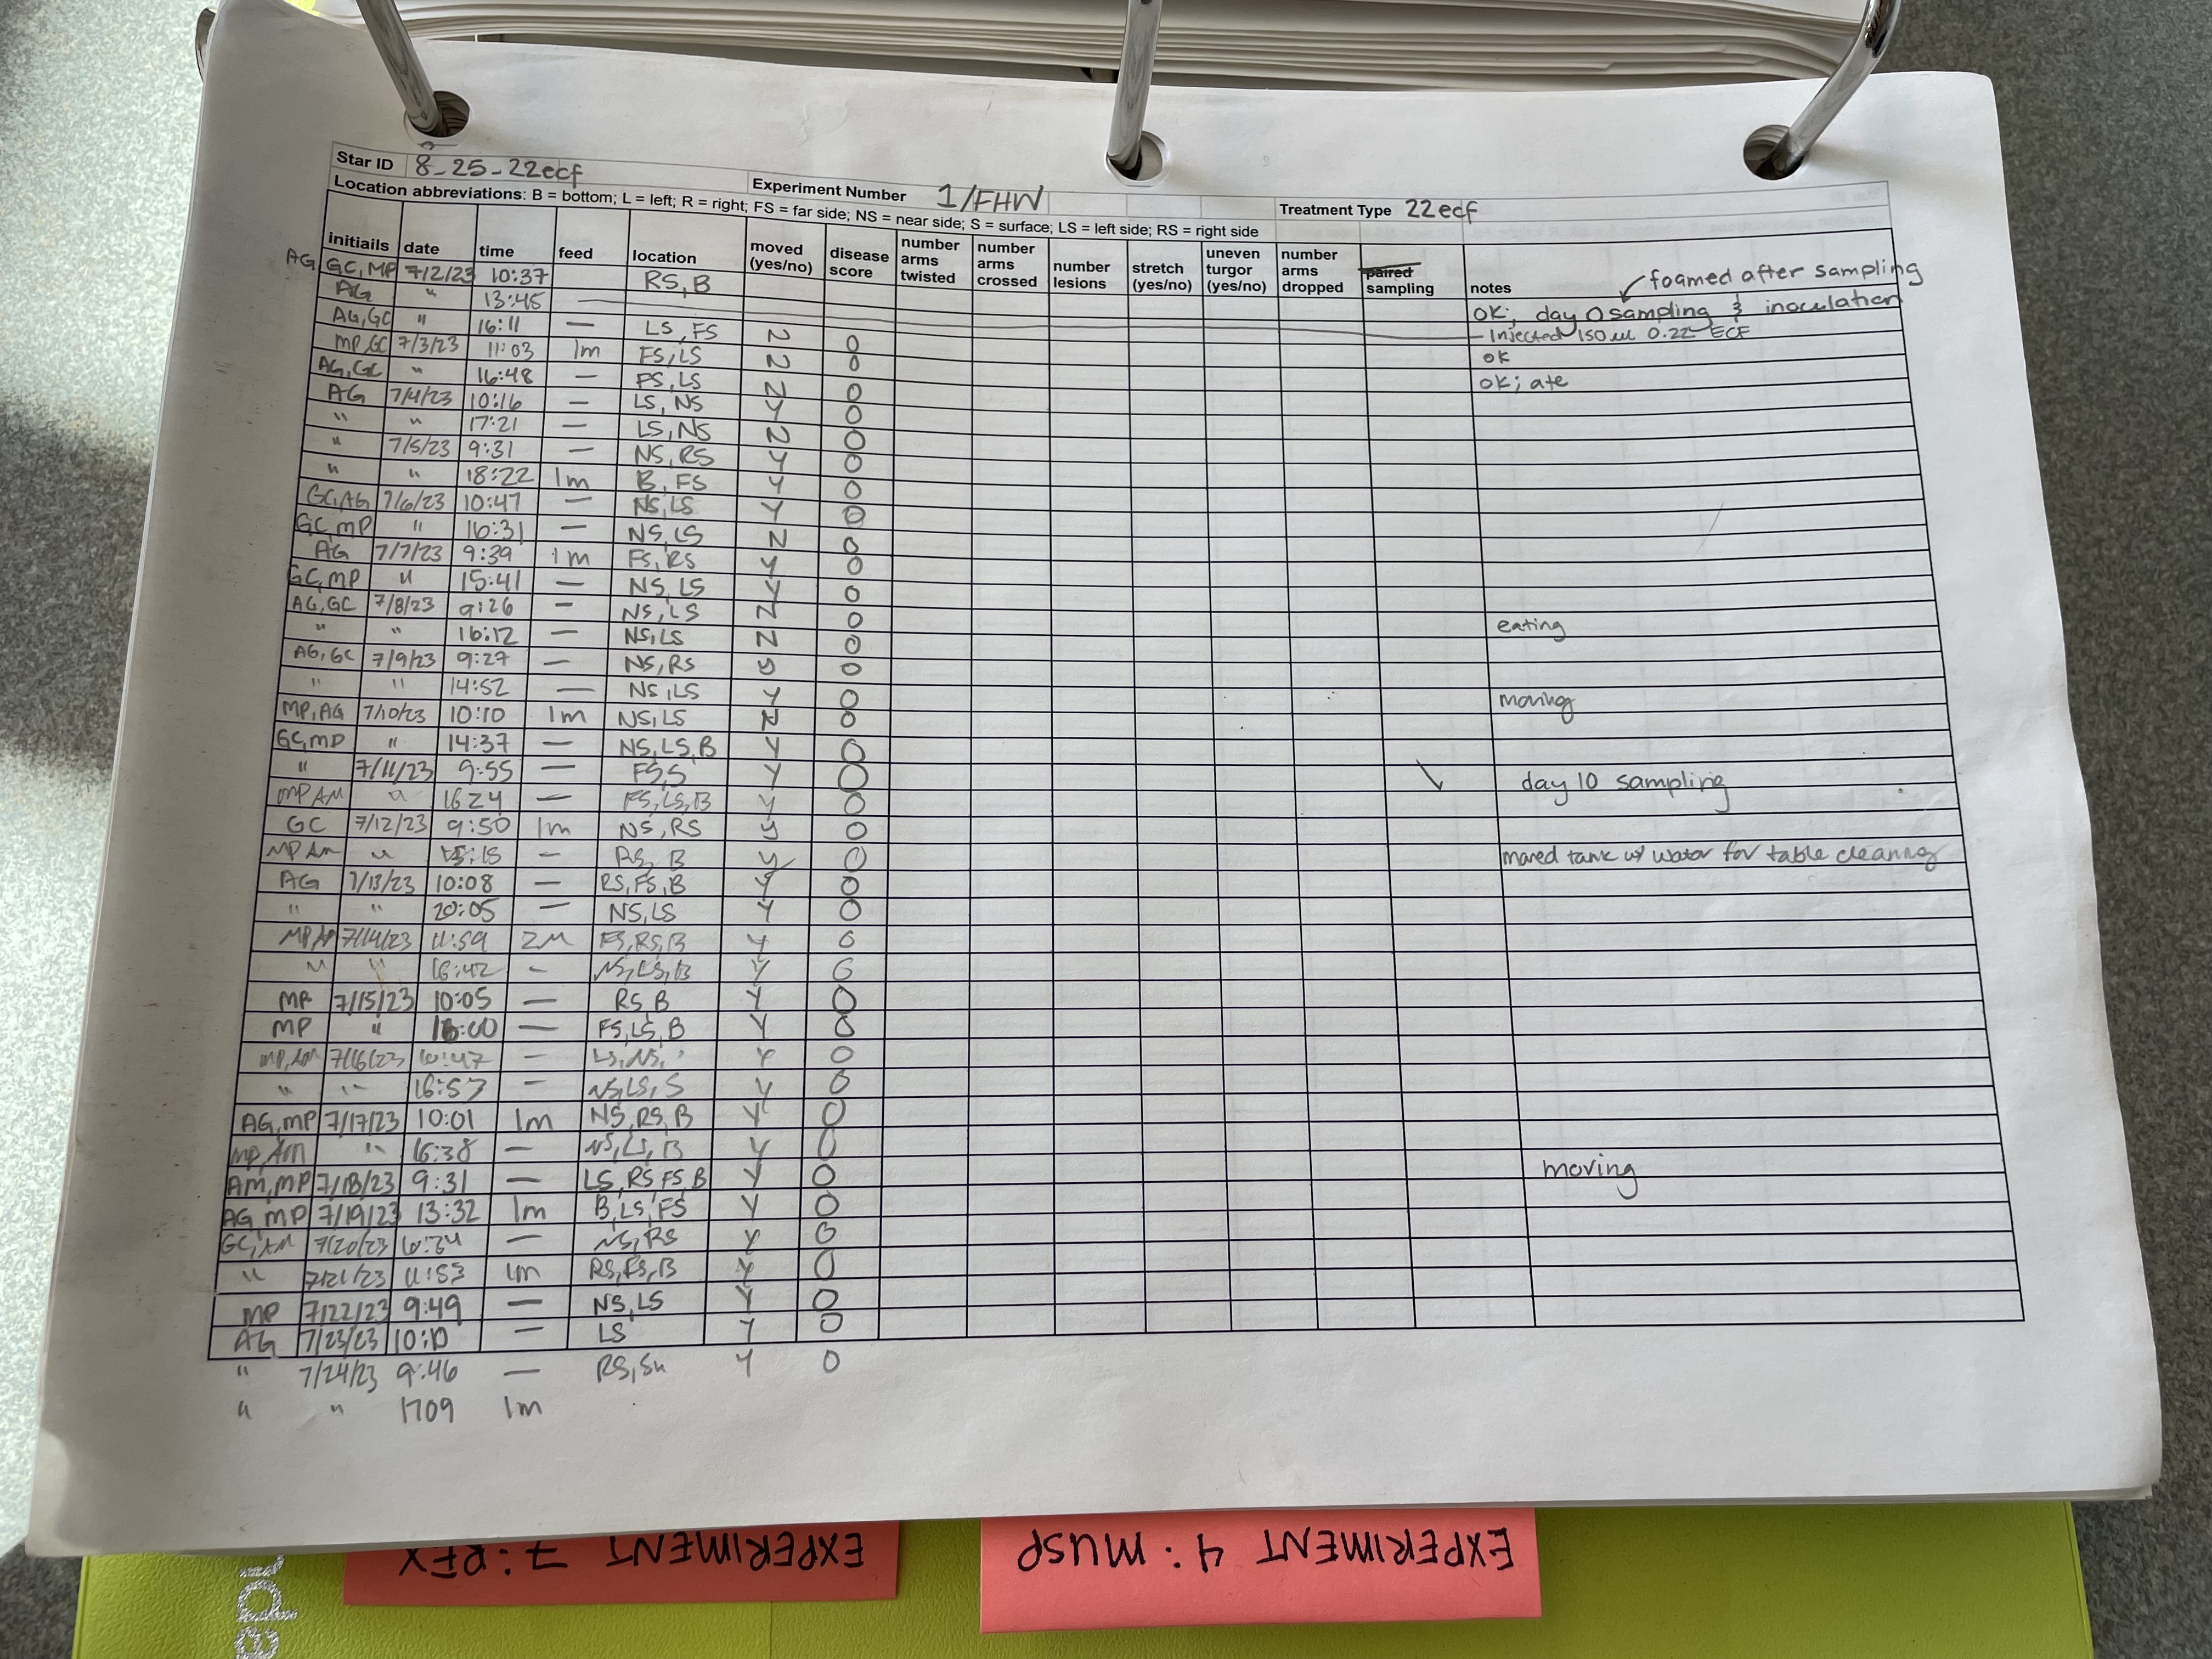 Star ID 8-25-22ecf Experiment Number 1/FHW Treatment Type 22ecf
Location abbreviations: B = bottom; L = left; R = right; FS = far side; NS = near side; S = surface; LS = left side; RS = right side
initiails date time feed location moved (yes/no) disease score number arms twisted number arms crossed number lesions stretch (yes/no) uneven turgor (yes/no) number arms dropped paired sampling notes
foamed after sampling
AG, GC, MP 7/2/23 10:37 RS, B OK; day 0 sampling & inoculation
AG " 13:45 — Injected 150 ul 0.22 ECF
AG, GC " 16:11 — LS, FS N 0 OK
MP, GC 7/3/23 11:03 1m FS, LS N 0 OK; ate
AG, GC " 16:48 — FS, LS N 0
AG 7/4/23 10:16 — LS, NS Y 0
" " 17:21 — LS, NS N 0
" 7/5/23 9:31 — NS, RS Y 0
" " 18:22 1m B, FS Y 0
GC, AG 7/6/23 10:47 — NS, LS Y 0
GC, MP " 16:31 — NS, LS N 0
AG 7/7/23 9:39 1m FS, RS Y 0
GC, MP " 15:41 — NS, LS Y 0
AG, GC 7/8/23 9:26 — NS, LS N 0 eating
" " 16:12 — NS, LS N 0
AG, GC 7/9/23 9:27 — NS, RS Y 0
" " 14:52 — NS, LS Y 0 moving
MP, AG 7/10/23 10:10 1m NS, LS N 0
GC, MP " 14:37 — NS, LS, B Y 0
" 7/11/23 9:55 — FS, S Y 0 \ day 10 sampling
MP AM " 1624 — FS, LS, B Y 0
GC 7/12/23 9:50 1m NS, RS Y 0
MP AM " 15:15 — RS, B Y 0 moved tank w/ water for table cleaning
AG 7/13/23 10:08 — RS, FS, B Y 0
" " 20:05 — NS, LS Y 0
MP, AM 7/14/23 11:59 2M FS, RS, B Y 0
" " 16:42 — NS, LS, B Y 0
MP 7/15/23 10:05 — RS, B Y 0
MP " 16:00 — FS, LS, B Y 0
MP, AM 7/16/23 10:47 — LS, NS, Y 0
" " 16:57 — NS, LS, S Y 0
AG, MP 7/17/23 10:01 1m NS, RS, B Y 0
MP, AM " 16:38 — NS, LS, B Y 0
AM, MP 7/18/23 9:31 — LS, RS, FS, B Y 0 moving
AG, MP 7/19/23 13:32 1m B, LS, FS Y 0
GC, AM 7/20/23 — NS, RS Y 0
" 7/21/23 11:53 1m RS, FS, B Y 0
MP 7/22/23 9:49 — NS, LS Y 0
AG 7/23/23 10:10 — LS Y 0
" 7/24/23 9:46 — RS, Su Y 0
" " 1709 1m
EXPERIMENT 7: PFX
EXPERIMENT 4: MUSP